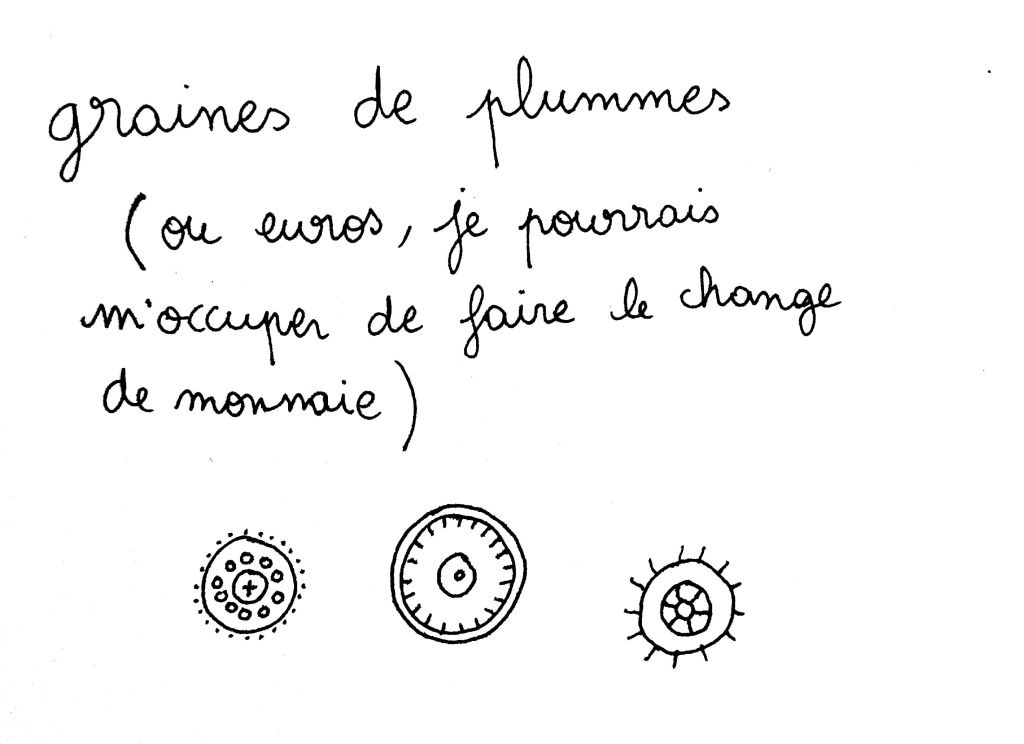 graines de plummes
(ou euros, je pourrais
m'occuper de faire le change
de monnaie)